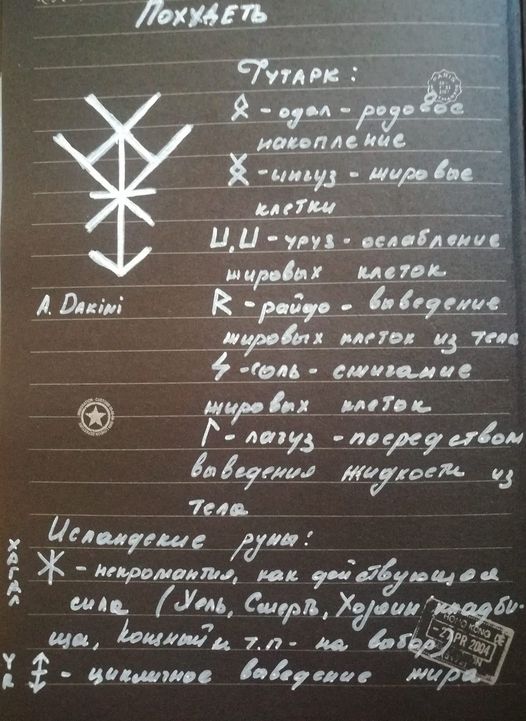 Похудеть
Футарк:
ᛟ - одал - родовое
накопление
ᛝ - ингуз - жировые
клетки
U, U - уруз - ослабление
жировых клеток
A. Dakini
R - райдо - выведение
жировых клеток из тела
ᛋ - соль - сжигание
жировых клеток
ᛚ - лагуз - посредством
выведения жидкости из
тела
Исландские руны:
ХАГАЛ
ᛡ - некромантия, как действующая
сила (Хель, Смерть, Хозяин кладби-
ща, Кощный и т.п - на выбор)
YR
- цикличное выведение жира
HONG KONG
- 2 APR 2004
PARIS